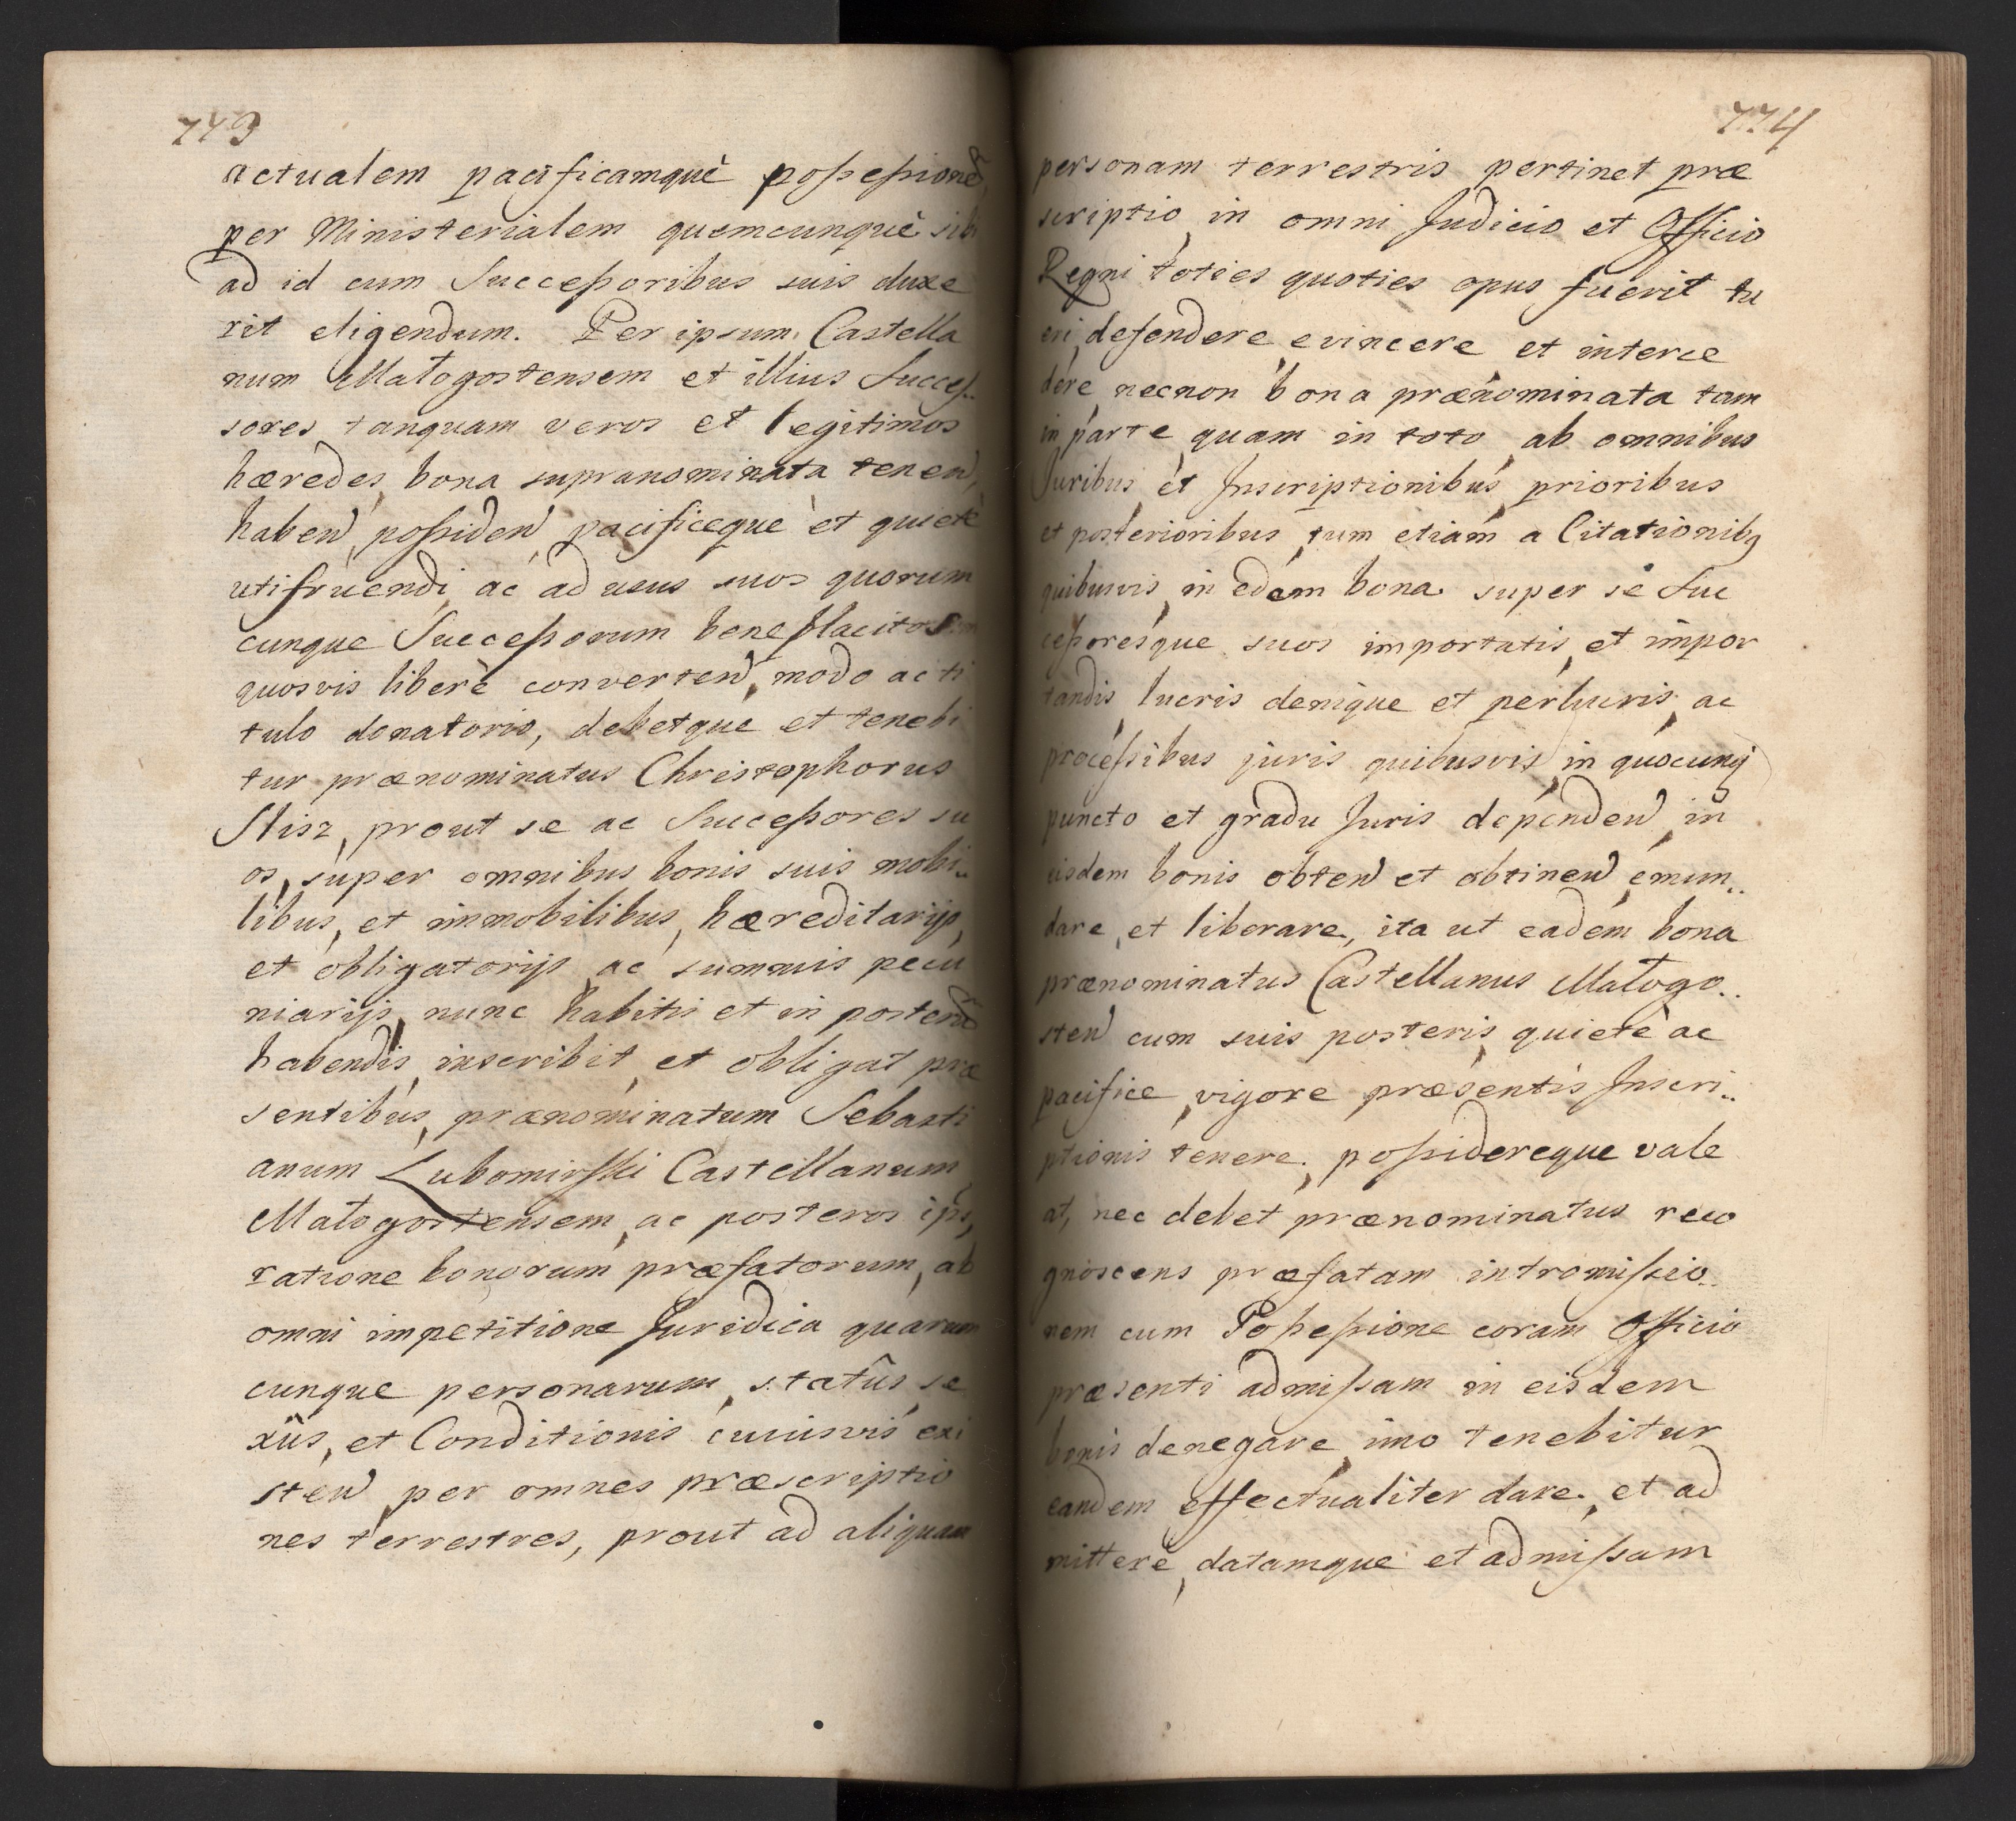 773
actualem pacificamquè possessionẽ,
per Ministerialem quemcunquè sibi
ad id cum Successoribus suis duxe
rit eligendum. Per ipsum Castella
num Małogostensem et illius Succes..
sores tanquam veros et legitimos
hæredes, bona supranominata tenen̄,
haben̄, possiden̄, pacificeque et quietè
utifruendi, ac ad usus suos quorum
cunque Successorum beneplacitos
quosvis liberè converten̄, modo ac ti
tulo donatorio, debetque et tenebi
tur prænominatus Christophorus
Stisz, prout se ac Successores su
os, super omnibus bonis suis mobi..
libus, et immobilibus, hæreditarijs,
et obligatorijs, ac summis pecu
niarijs, nunc habitis et in posterũ
habendis, inscribit, et obligat præ
sentibus, prænominatum Sebasti
anum Lubomirski Castellanum
Małogostensem, ac posteros ips,
ratione bonorum præfatorum, ab
omni impetitione Juridica quarum
cunque personarum, statûs, se
xûs, et Conditionis cuiusvis exi
sten̄, per omnes præscriptio
nes terrestres, prout ad aliquam
774
personam terrestris pertinet præ
scriptio, in omni Judicio et Officio
Regni toties quoties opus fuerit tu
eri, defendere, evincere et interce
dere, necnon bona prænominata tam
in parte, quam in toto, ab omnibus
Juribus et Inscriptionibus, prioribus
et posterioribus, tum etiam a Citationibq
quibusvis, in edem bona super se Suc
cessoresque suos importatis, et impor
tandis, lucris denique et perlucris, ac
processibus juris quibusvis, in quocunq
puncto et gradu Juris dependen̄, in
eisdem bonis obten̄ et obtinen̄, emun..
dare, et liberare, ita ut eadem bona
prænominatus Castellanus Małogo..
sten̄ cum suis posteris, quietè ac
pacifice, vigore præsentis Inscri..
ptionis tenere, possidereque vale
at, nec debet prænominatus reco
gnoscens præfatam intromissio..
nem cum Possessione coram Officio
præsenti admissam in eisdem
bonis denegare, imo tenebitur
eandem effectualiter dare, et ad
mittere, datamque et admissam